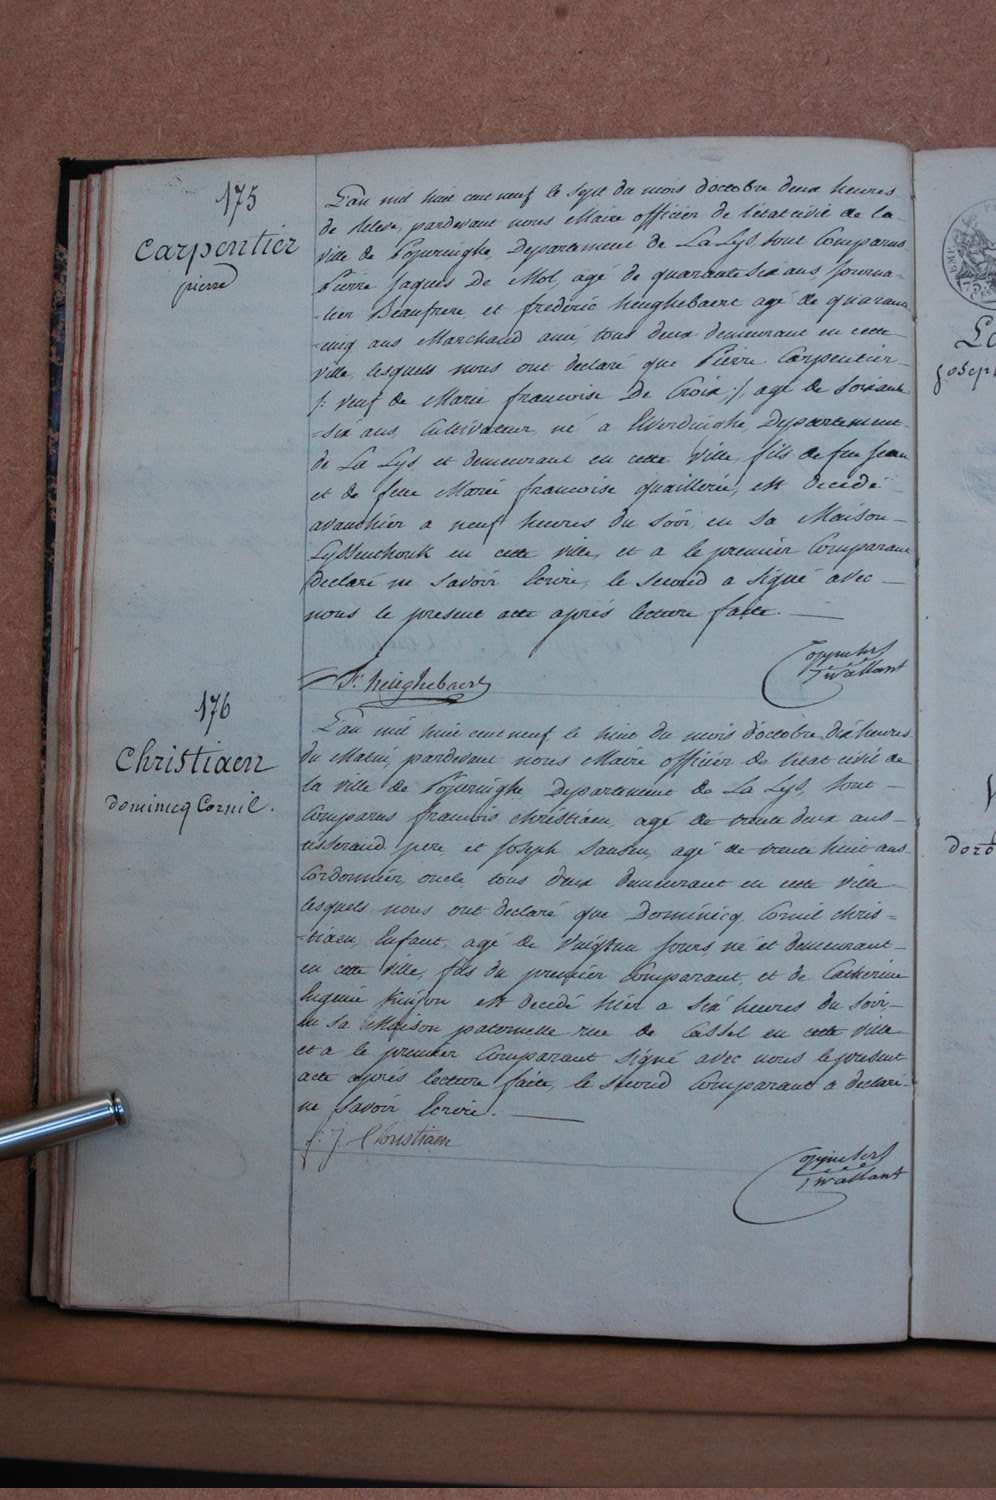 175
Carpentier
pierre
L'an mil huit cent neuf le sept du mois d'octobre deux heures
de relevé, pardevant nous Maire officier de l'état civil de la
ville de Poperinghe, Departement de La Lys, sont Comparus
Pierre Jaques De Mol, agé de quarante six ans, Journa-
-lier Beaufrere et frederic heughebaert agé de quarante
-cinq ans Marchand ami, tous deux demeurant en cette
ville, lesquels nous ont declaré que Pierre Carpentier
/: veuf de Marie francoise De Croix :/, agé de soixante
=six ans, Cultivateur, né a Elverdinghe, Departement
de La Lys et demeurant en cette ville, fils de feu Jean
et de feue Marie francoise quaillerie, est decedé
avanthier a neuf heures du soir, en sa Maison
Lyssenthouk en cette ville, et a le premier Comparant
declaré ne savoir Ecrire, le second a signé avec
nous le present acte aprés lecture faite.
Fr. heughebaert
176
Christiaen
dominicq Cornil.
L'an mil huit cent neuf, le huit du mois d'octobre, dix heures
du Matin, pardevant nous Maire officier de l'état civil de
la ville de Poperinghe, Departement de La Lys, sont
Comparus francois christiaen, agé de trente deux ans
tisserand, pere, et Joseph Sansen, agé de trente huit ans
Cordonnier, oncle tous deux demeurant en cette ville
lesquels nous ont declaré que Dominicq Cornil chris=
=tiaen, Enfant, agé de Vingtun Jours, né et demeurant
en cette ville, fils du premier Comparant, et de Catherine
Eugenie est decedé hier a six heures du soir,
en sa Maison paternelle rue de Cassel en cette ville
et a le premier Comparant signé avec nous le present
acte aprés lecture faite, le second Comparant a declaré
ne savoir Ecrire.
f: J. Christiaen